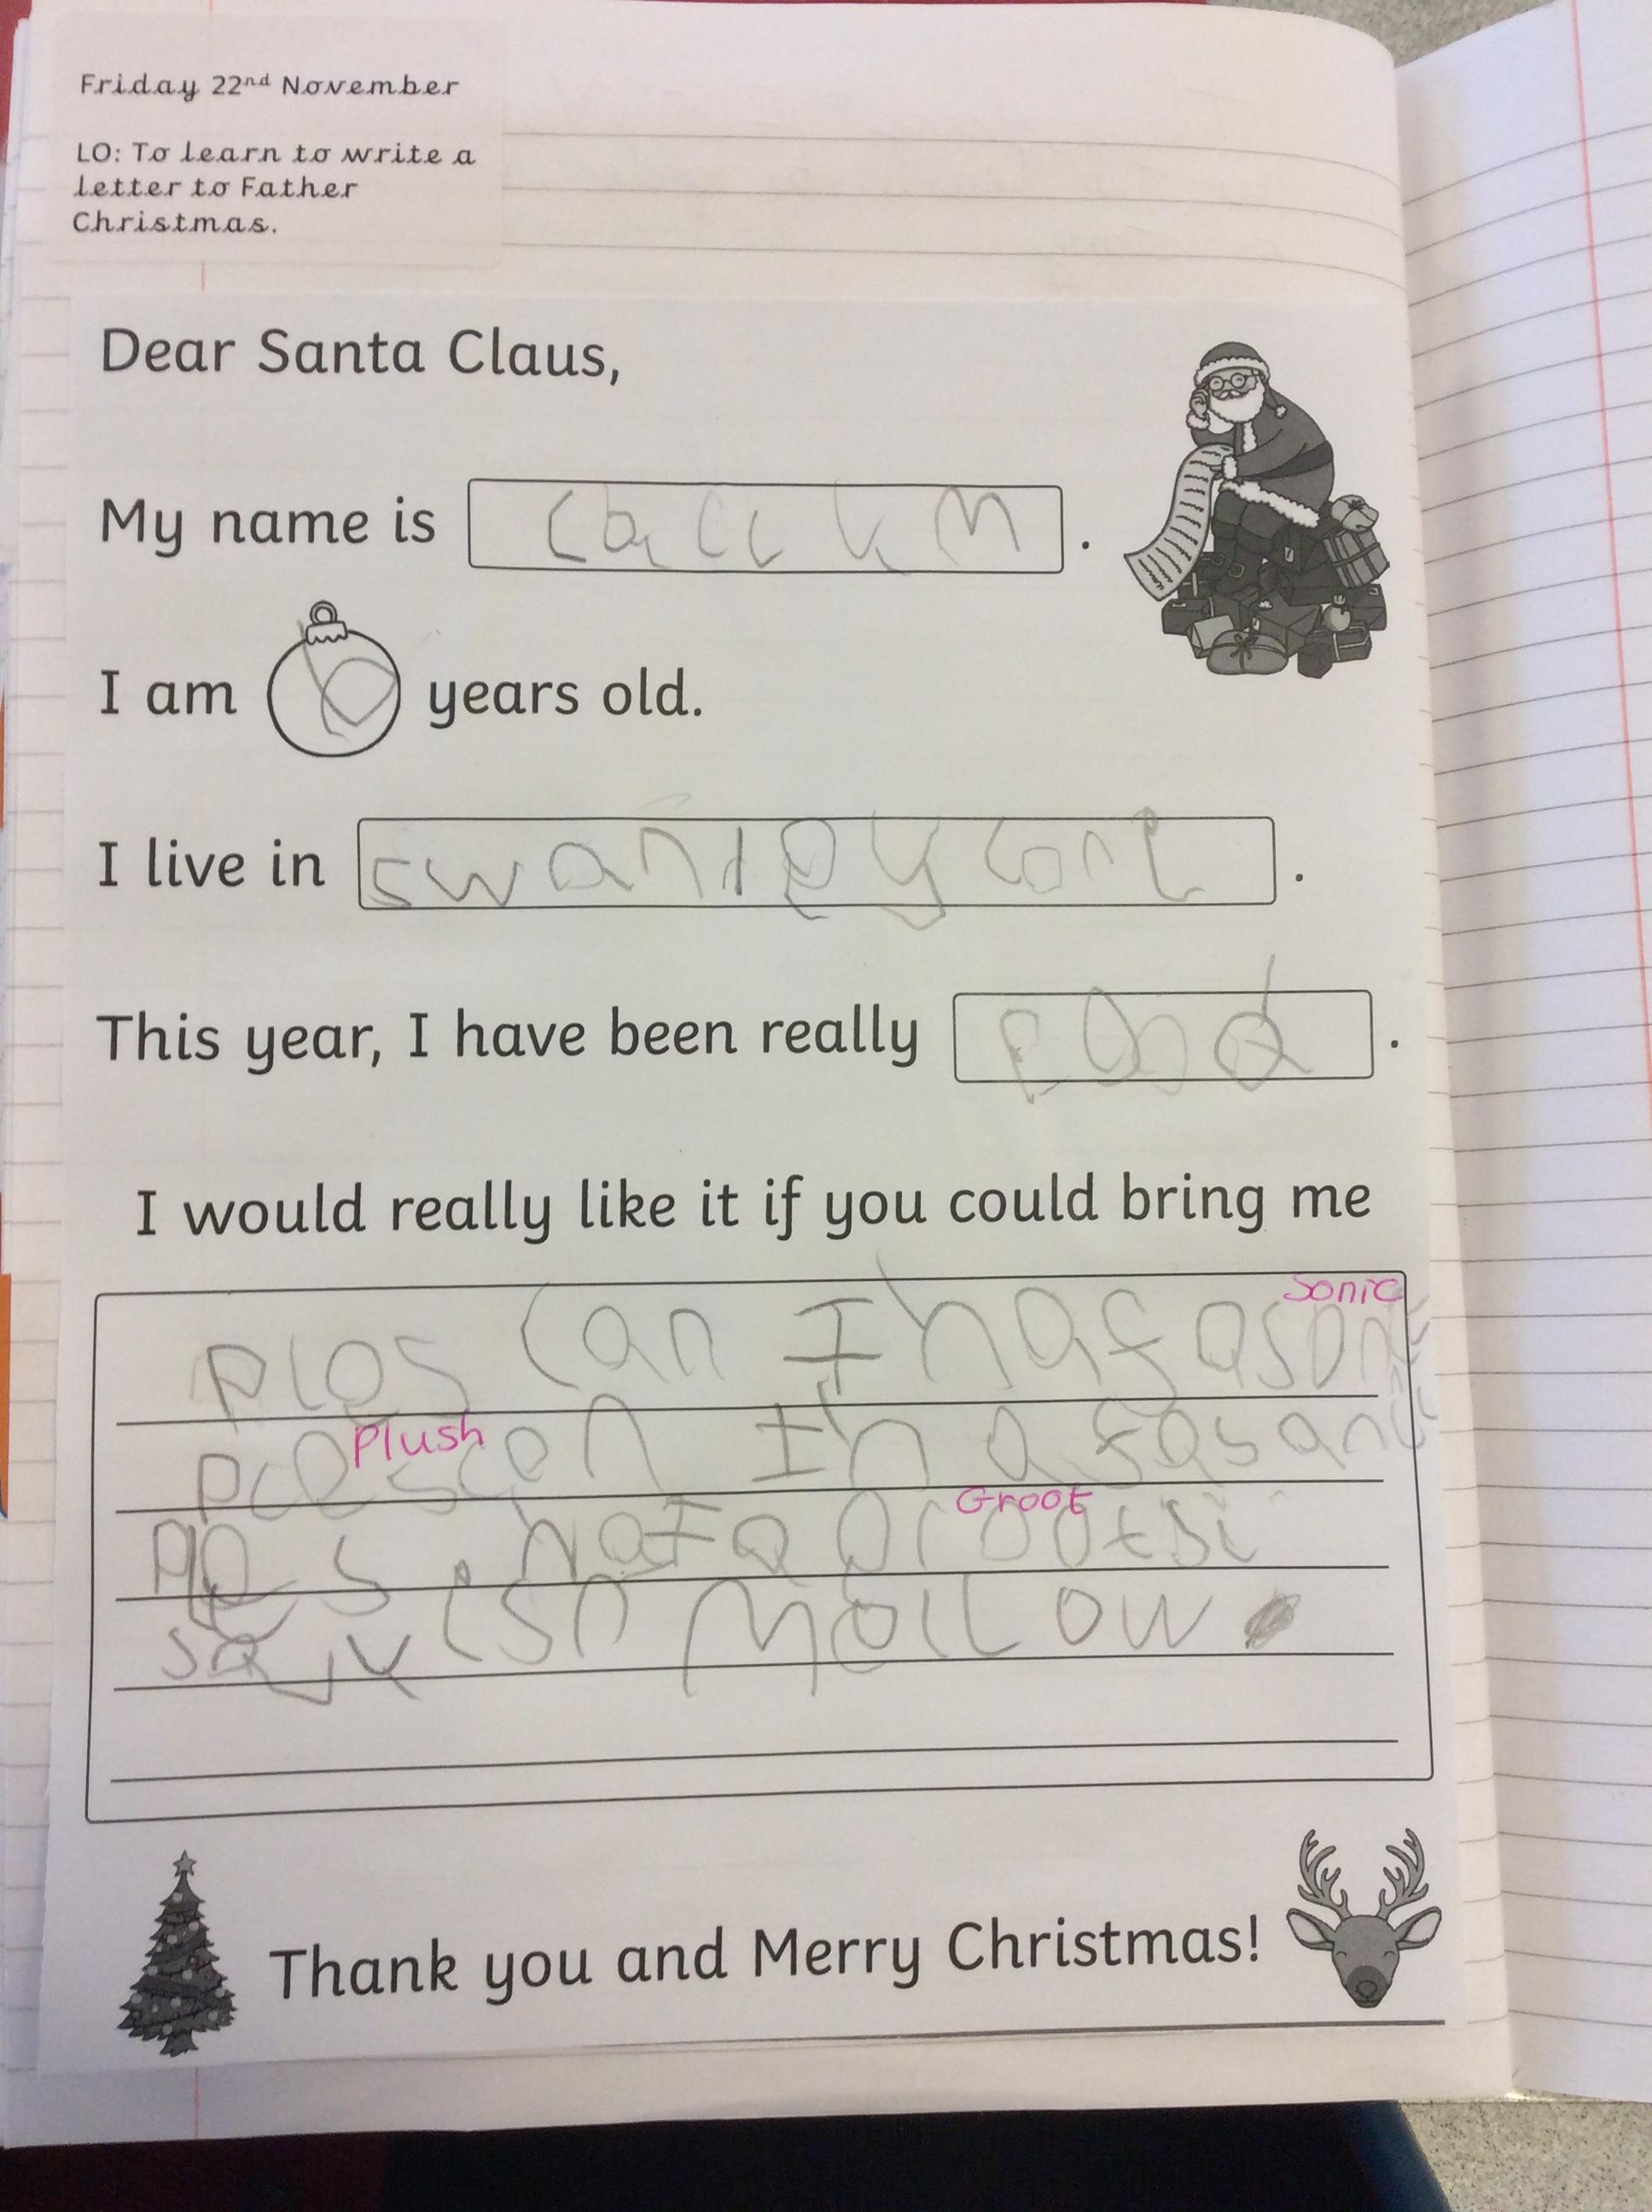 Friday 22nd November
LO: To learn to write a
letter to Father
Christmas.
Dear Santa Claus,
My name is callum.
I am 6 years old.
I live in swanley
This year, I have been really
I would really like it if you could bring me
Sonic
ples can I haf a son
Plush
plescan I haf a
Groot
ples haf a groot
mallow.
Thank you and Merry Christmas!